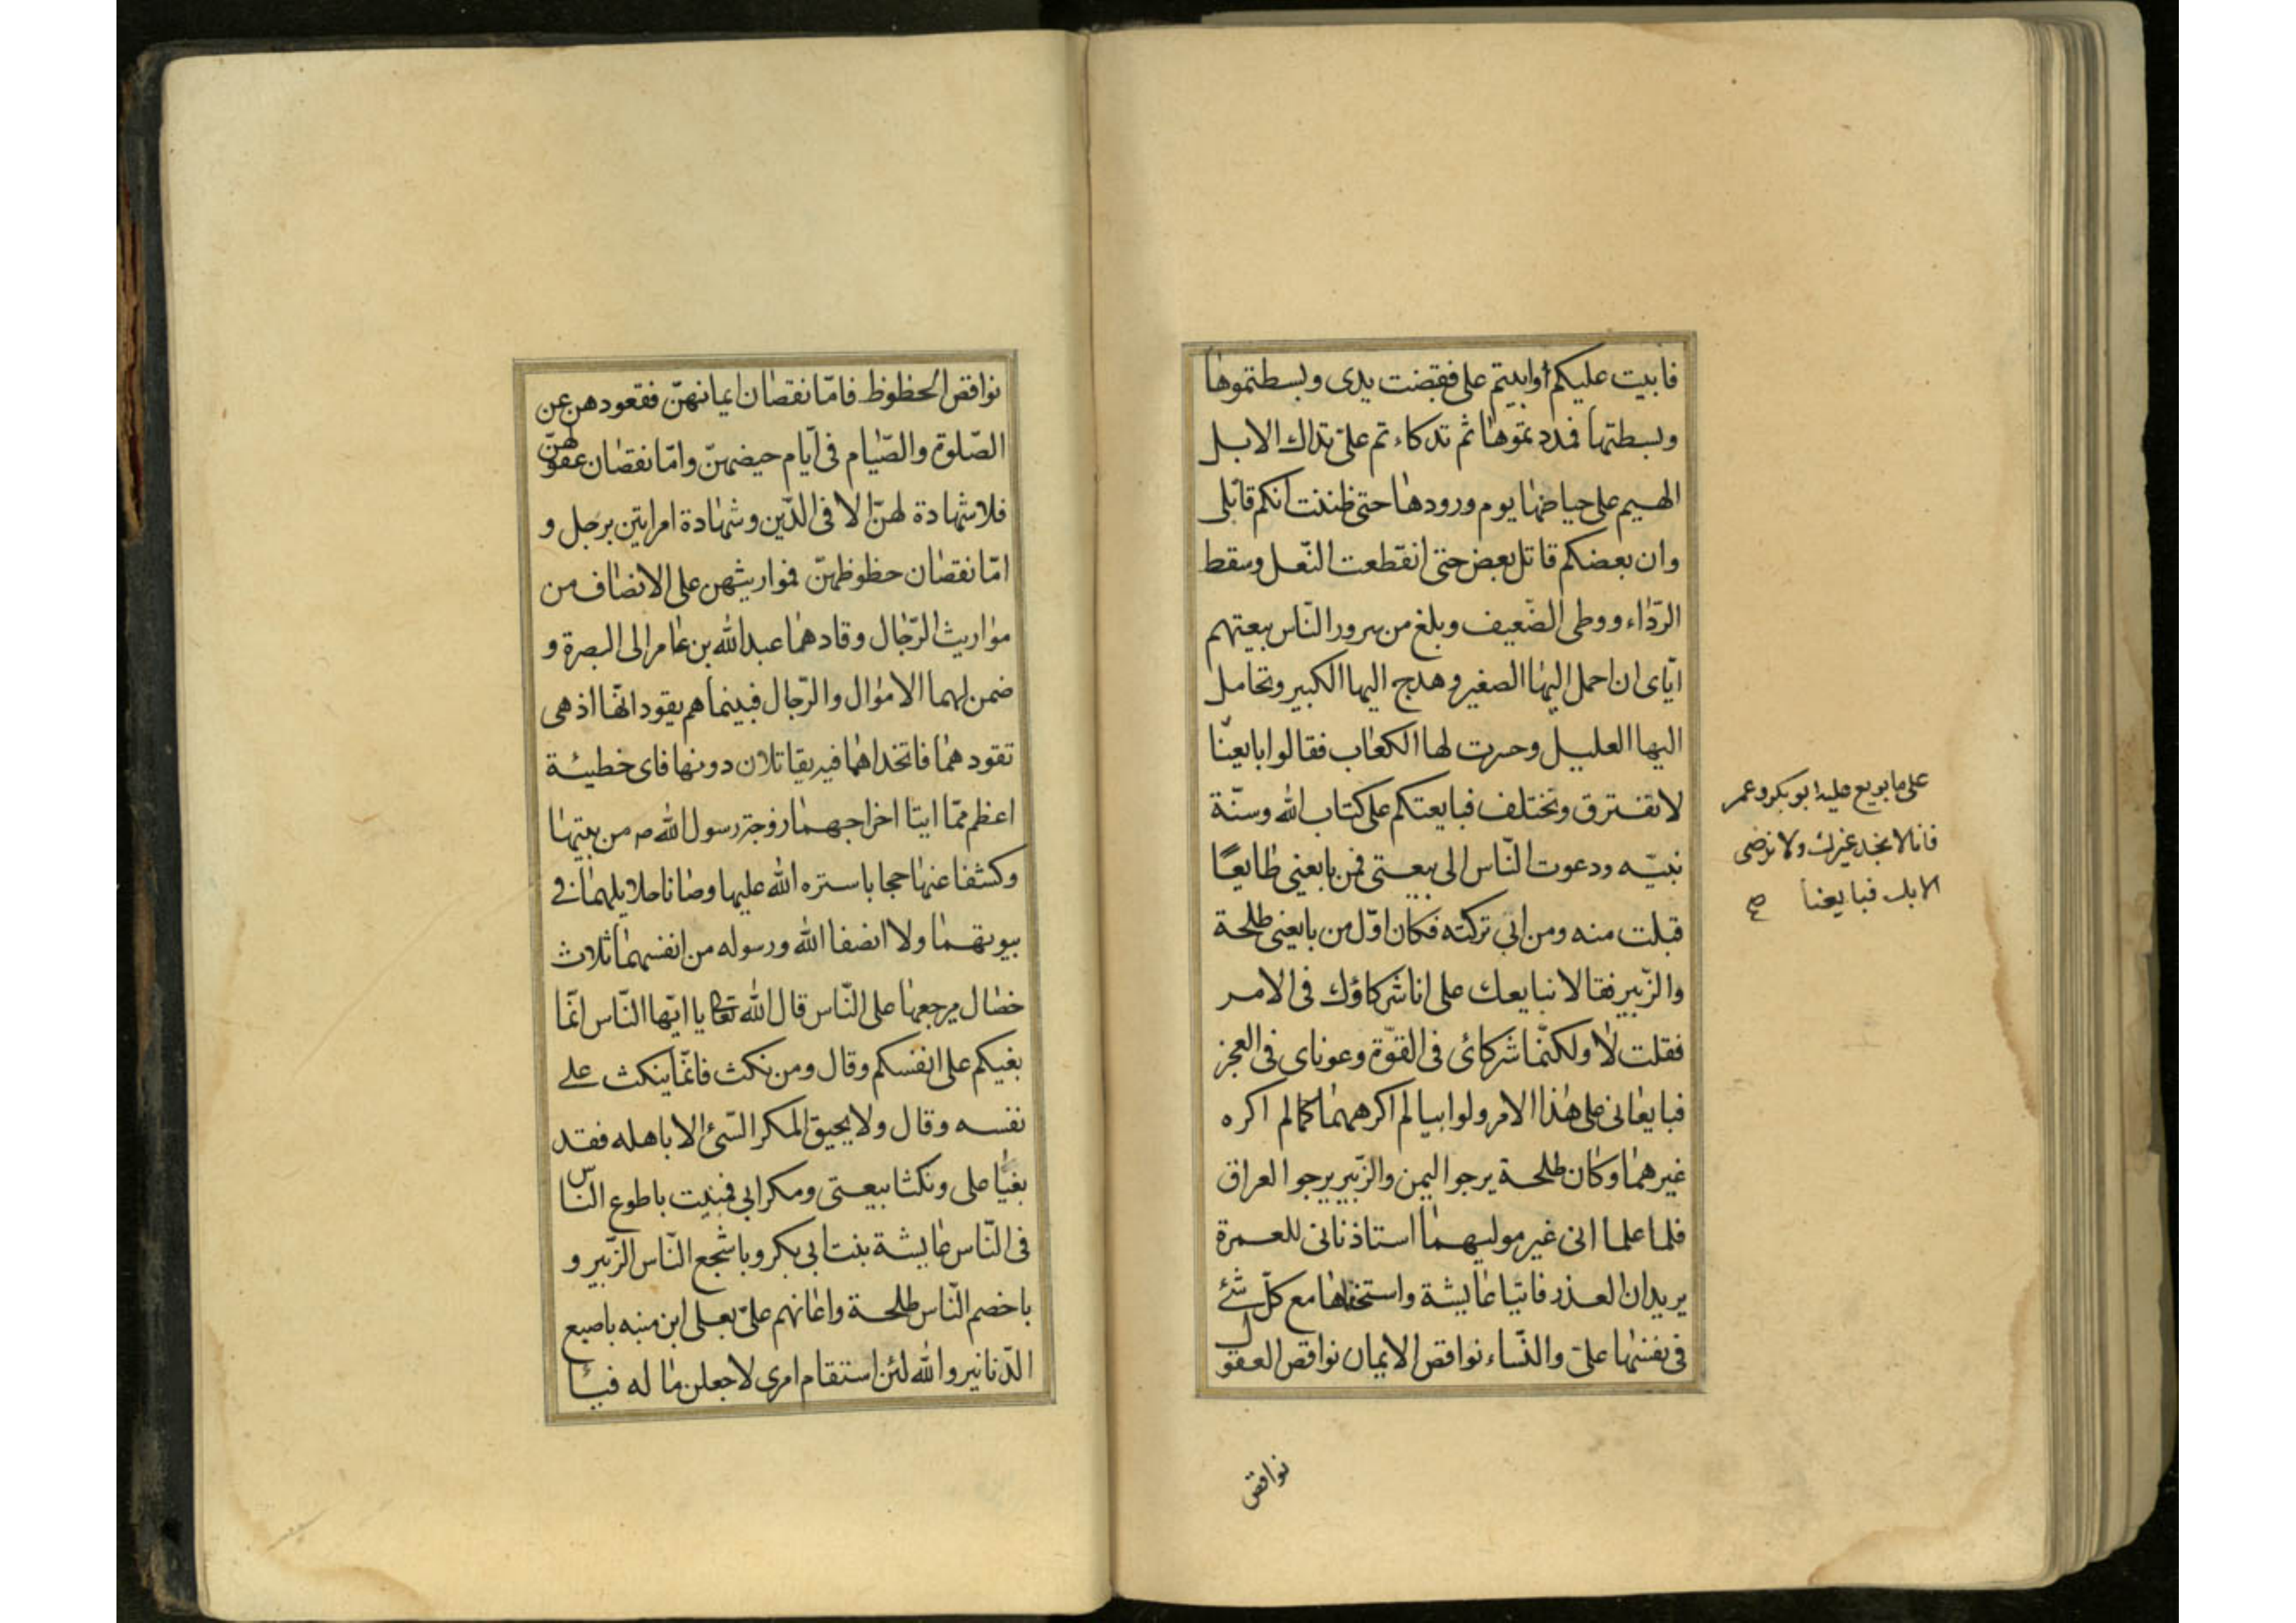 فابيت عليكم وابيتم علی فقبضت يدی وبسطتموها
وبسطتها فمددتموها ثم تداكاءتم علیّ تداك الابل
الهيم علی حياضها يوم ورودها حتی ظننت انكم قاتلی
وان بعضكم قاتل بعض حتی انقطعت النّعل وسقط
الرّداء ووطی الضّعيف وبلغ من سرور النّاس ببيعتهم
ايّای ان احمل اليها الصغير وهدج اليها الكبير وتحامل
اليها العليل وحسرت لها الكعاب فقالوا بايعنّا
لا نفترق ونختلف فبايعتكم علی كتاب الله وسنّة
نبيّه ودعوت النّاس الی بيعتی فمن بايعنی طايعًا
قبلت منه ومن ابی تركته فكان اوّل من بايعنی طلحة
والزّبير فقالا نبايعك علی انا شركاؤك فی الامر
فقلت لا ولكنّما شركائی فی القوّة وعونای فی العجز
فبايعانی علی هذا الامر ولو ابيا لم اكرههما كما لم اكره
غيرهما وكان طلحة يرجوا اليمن والزّبير يرجوا العراق
فلما علما انی غير موليهما استاذنانی للعمرة
يريدان الغدر فاتيا عايشة واستخفاها مع كلّ شئ
فی نفسها علیّ والنّساء نواقص الايمان نواقص العقول
نواقص
علی ما بويع عليه ابو بكر وعمر
فانا لا نجد غيرك ولا نرضی
الا بك فبايعنا صح
نواقص الحظوظ فامّا نقصان ايمانهنّ فقعودهن عن
الصّلوة والصّيام فی ايّام حيضهنّ وامّا نقصان عقولهنّ
فلا شهادة لهنّ الا فی الدّين وشهادة امراتين برجل و
امّا نقصان حظوظهنّ فمواريثهن علی الانصاف من
مواريث الرّجال وقادهما عبد الله بن عامر الی البصرة و
ضمن لهما الاموال والرّجال فبينما هم يقودانها اذ هی
تقودهما فاتخذاها فيه يقاتلان دونها فای خطيئة
اعظم ممّا اتيا اخراجهما زوجة رسول الله ص من بيتها
وكشفا عنها حجابا ستره الله عليها وصانا حلايلهما فی
بيوتهما ولا انصفا الله ورسوله من انفسهما ثلاث
خصال مرجعها علی النّاس قال الله تعا يا ايّها النّاس انّما
بغيكم علی انفسكم وقال ومن نكث فانّما ينكث علی
نفسه وقال ولا يحيق المكر السّیّئ الا باهله فقد
بغيا علی ونكثا بيعتی ومكرا بی فمنيت باطوع النّاس
فی النّاس عايشة بنت ابی بكر وباشجع النّاس الزّبير و
باخصم النّاس طلحة واعانهم علیّ يعلی ابن منبه باصبع
الدّنانير والله لئن استقام امری لاجعلن ماله فيئا